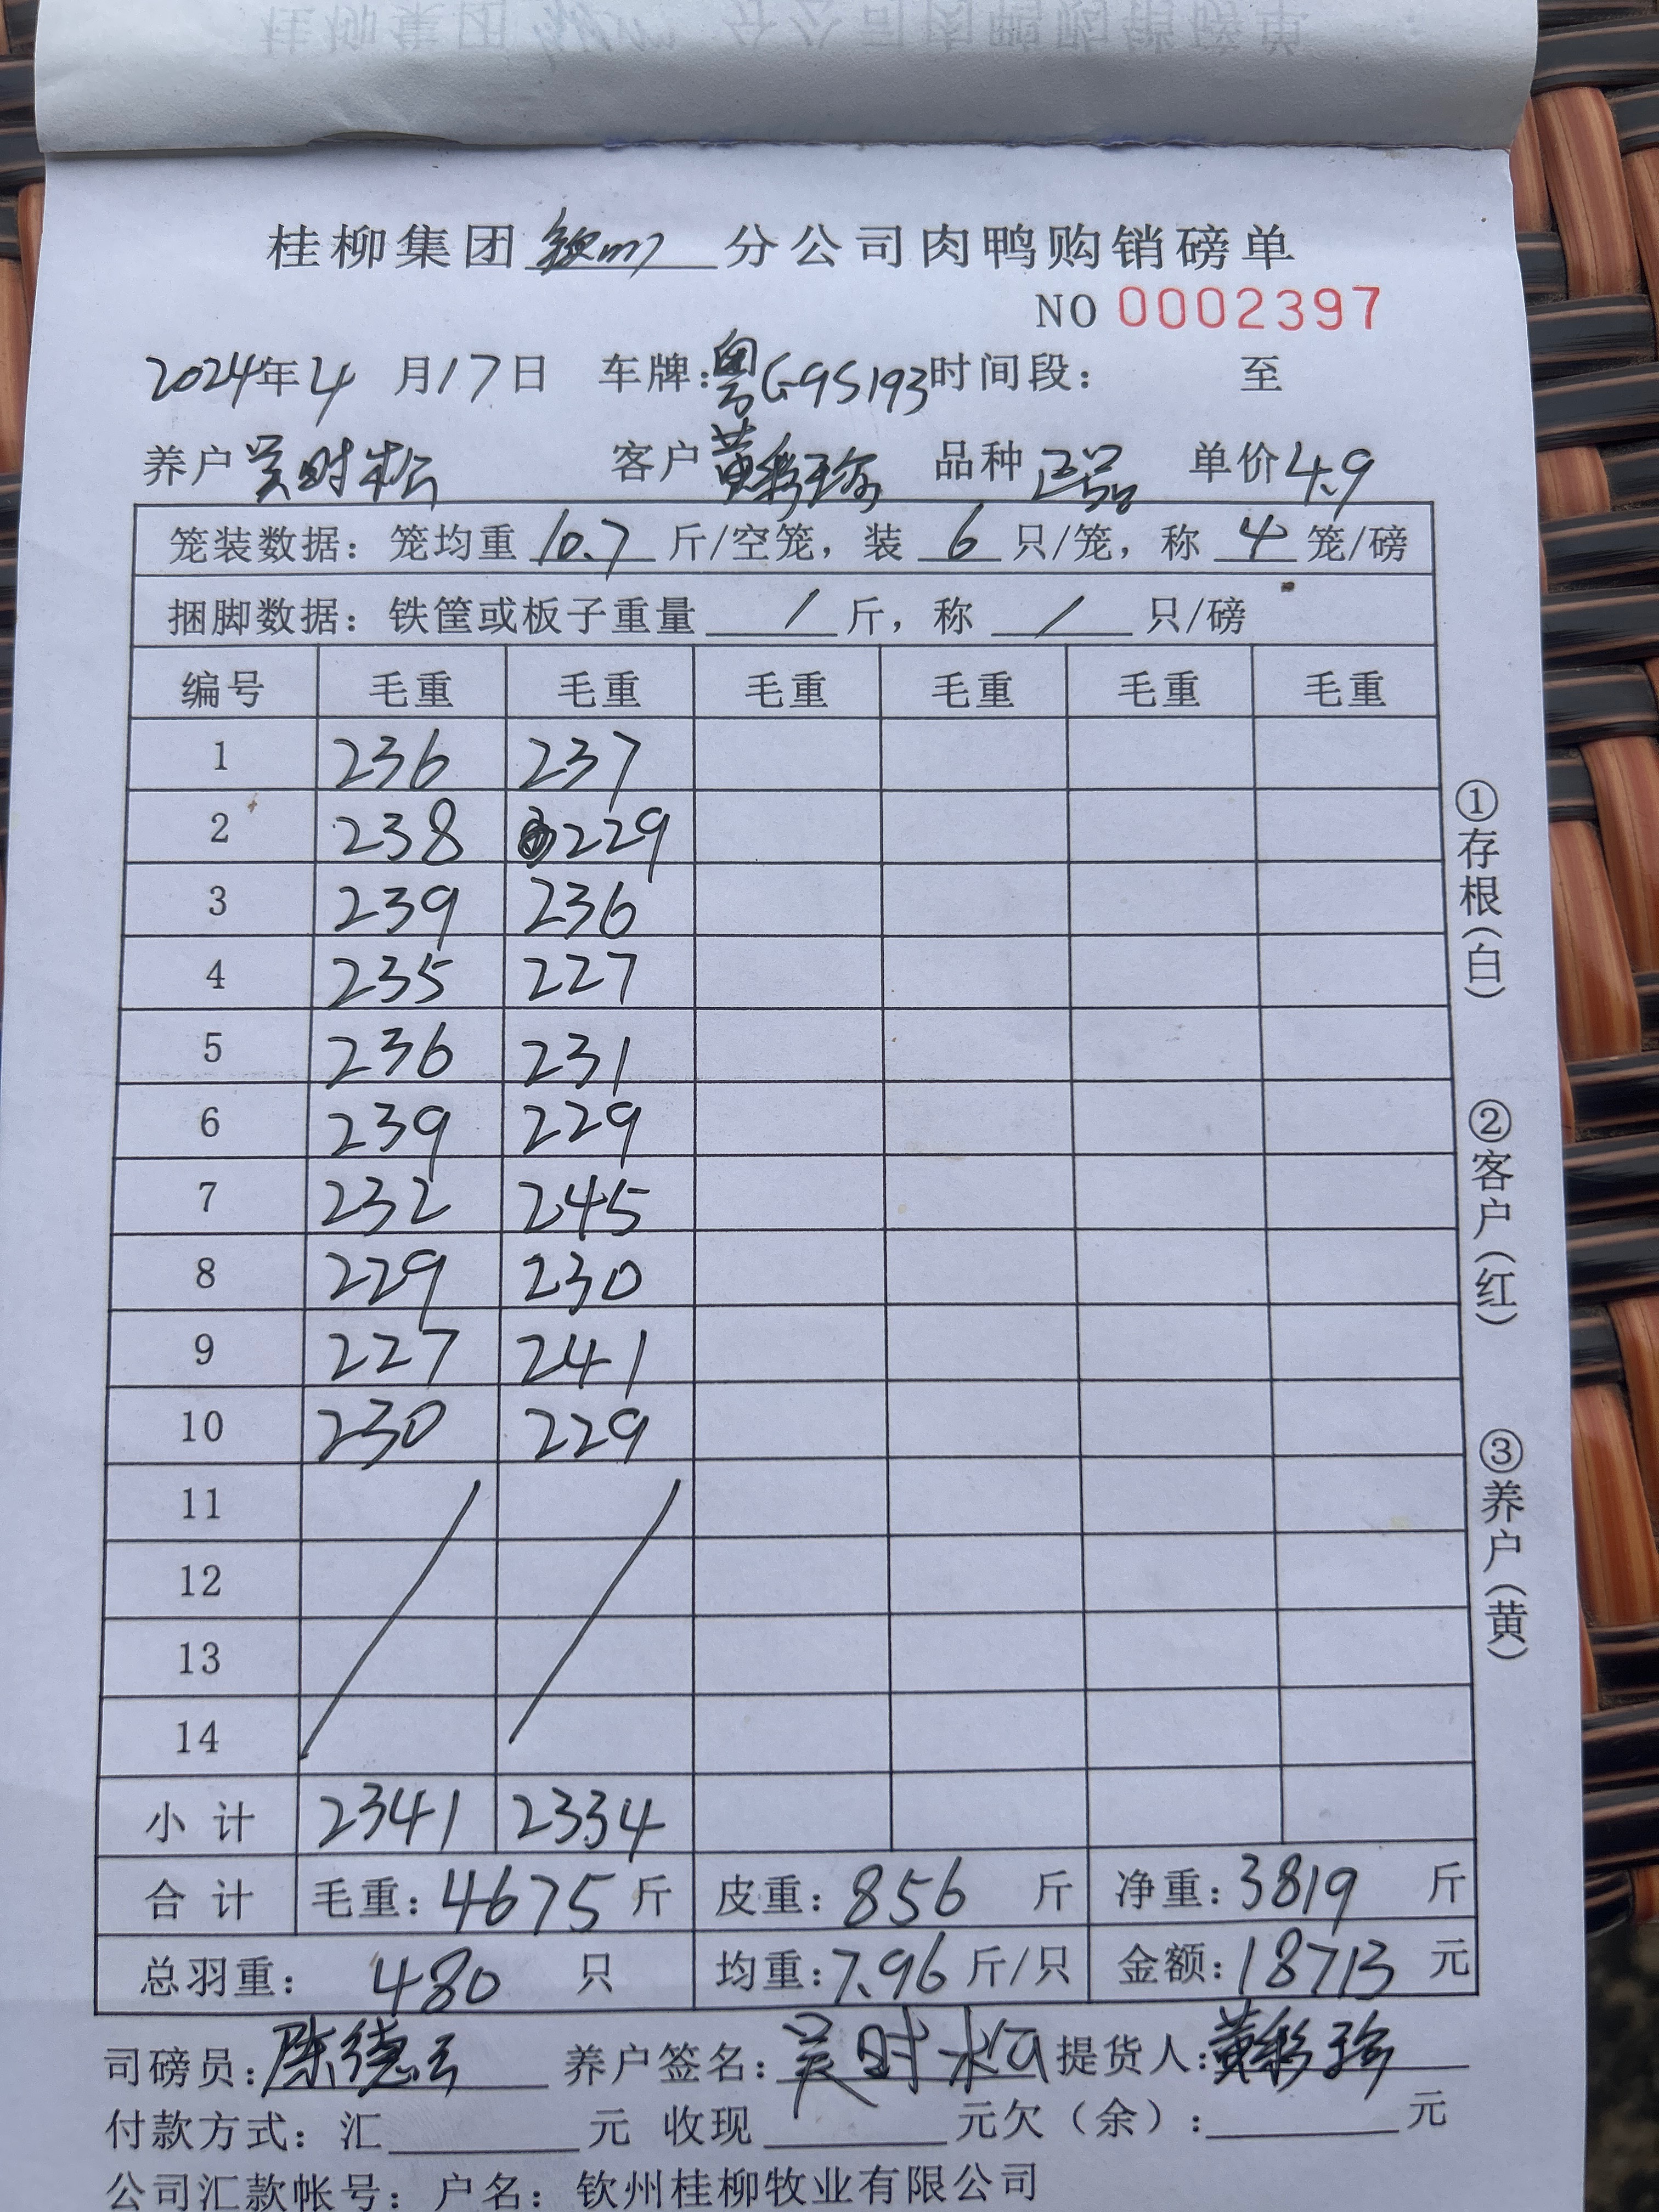 桂柳集团钦州分公司肉鸭购销磅单
NO 0002397
2024年4月17日 车牌:粤G9S193时间段: 至
养户吴时松 客户黄彩珍 品种正品 单价4.9
笼装数据: 笼均重10.7斤/空笼, 装6只/笼, 称4笼/磅
捆脚数据: 铁筐或板子重量/斤, 称/只/磅
编号 毛重 毛重 毛重 毛重 毛重 毛重
1 236 237
2 238 229
3 239 236
4 235 227
5 236 231
6 239 229
7 232 245
8 229 230
9 227 241
10 230 229
11
12
13
14
小计 2341 2334
合计 毛重: 4675斤 皮重: 856斤 净重: 3819斤
总羽重: 480只 均重: 7.96斤/只 金额: 18713元
司磅员: 陈德云 养户签名: 吴时松 提货人: 黄彩珍
付款方式: 汇 元 收现 元欠(余): 元
公司汇款帐号: 户名: 钦州桂柳牧业有限公司
①存根(白)
②客户(红)
③养户(黄)